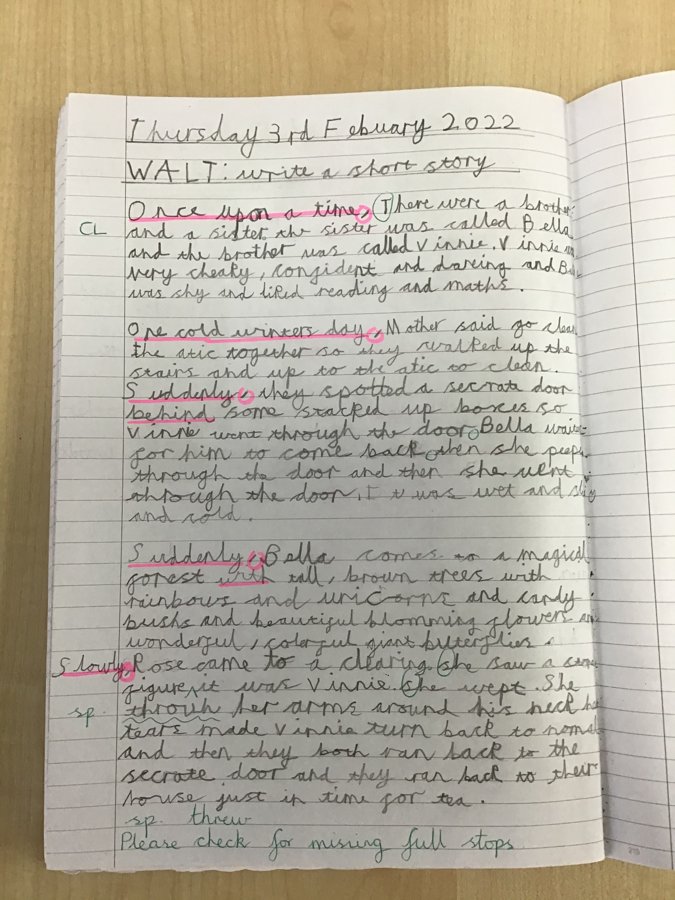 Thursday 3rd Febuary 2022
WALT: write a short story
Once upon a time, There were a brother
CL
and a sister the sister was called Bella
and the brother was called Vinnie. Vinnie
very cheaky, confident and dareing and
was shy and liked reading and maths.
One cold winters day, Mother said go clean
the atic together so they walked up the
stairs and up to the atic to clean.
Suddenly, they spotted a secrate door
behind some stacked up boxes so
Vinnie went through the door. Bella
for him to come back then she
through the door and then she went
through the door. It was wet and
and cold.
Suddenly, Bella comes to a magical
forest with tall, brown trees with
rainbows and unicorns and candy
bushs and beautiful blomming flowers
wonderful, colorful giant butterflies.
Slowly, Rose came to a clearing. She saw a
figure, it was Vinnie. She wept. She
sp. throuh her arms around his neck
tears made Vinnie turn back to
and then they both ran back to the
secrate door and they ran back to their
house just in time for tea.
sp. threw
Please check for missing full stops